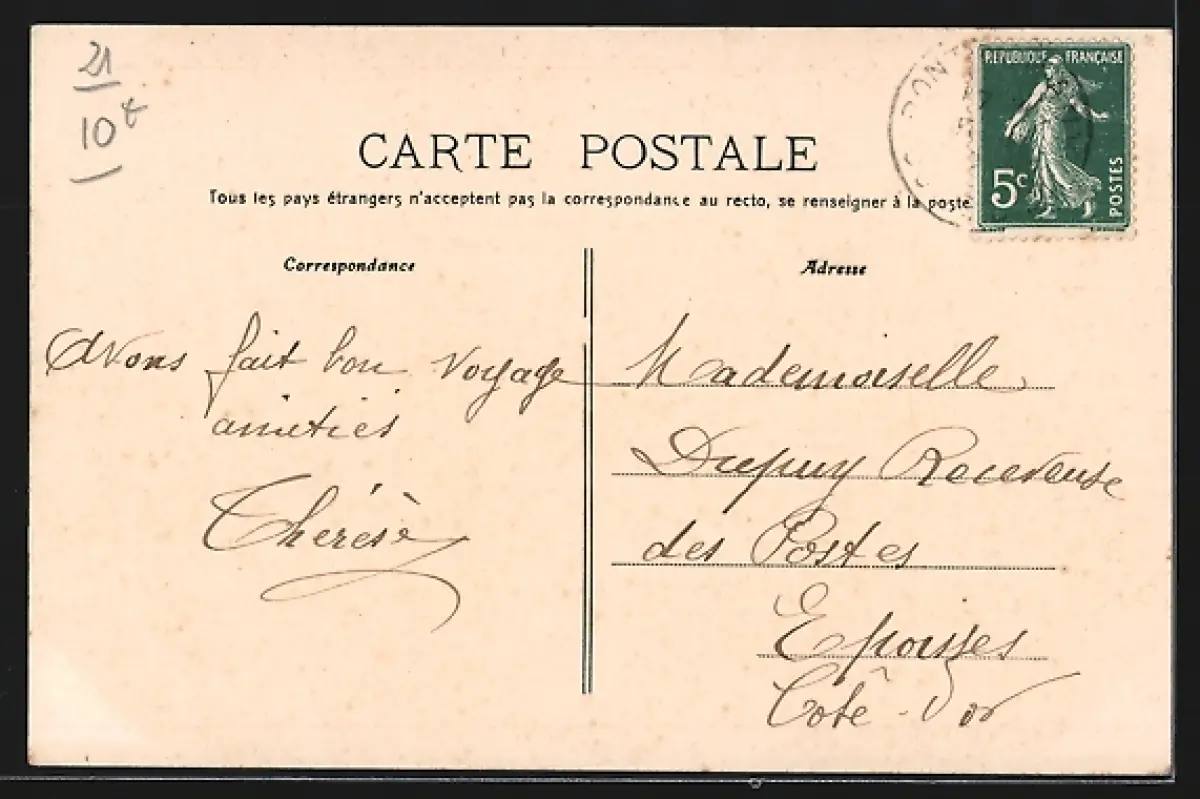 21
10€
CARTE POSTALE
Tous les pays étrangers n'acceptent pas la correspondance au recto, se renseigner à la poste
REPUBLIQUE FRANÇAISE
5c
POSTES
PONT
Correspondance
Avons fait bon voyage
amitiés
Thérèse
Adresse
Mademoiselle
Dupuy Receveuse
des Postes
Epoisses
Côte-d'or